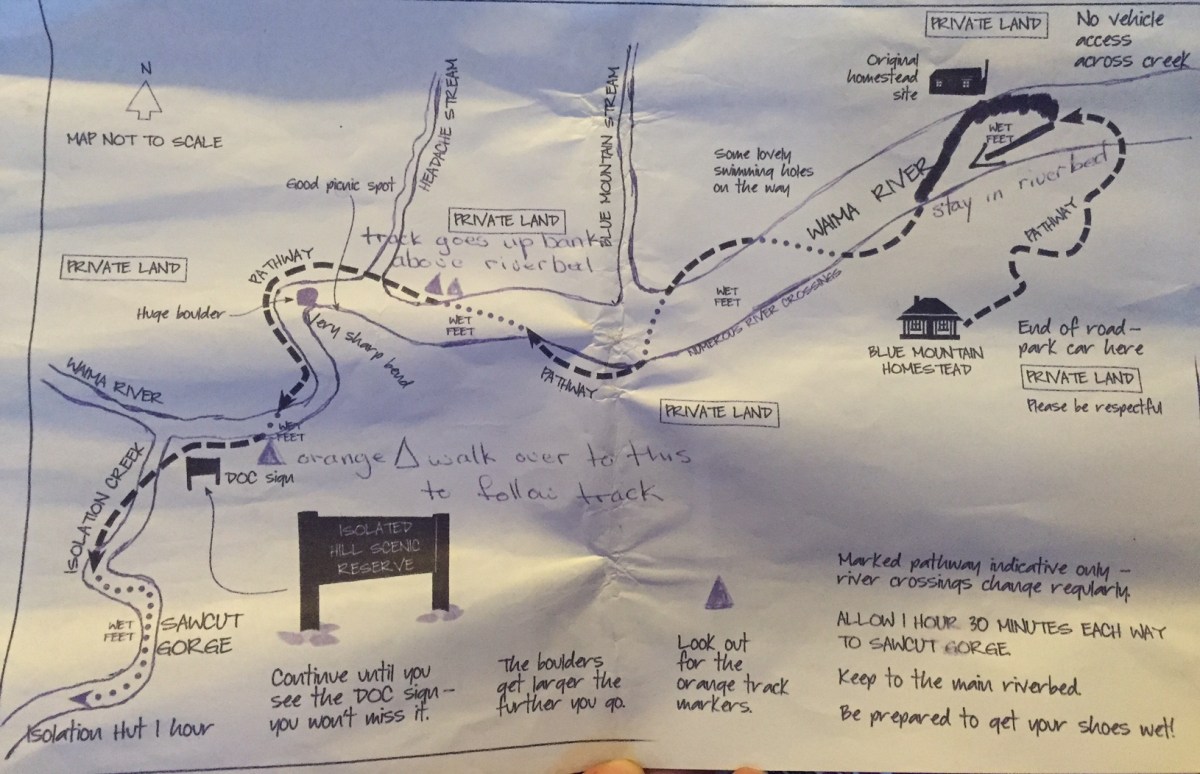 PRIVATE LAND
No vehicle
access
across creek
Original
homestead
site
N
MAP NOT TO SCALE
HEADACHE STREAM
BLUE MOUNTAIN STREAM
WET
FEET
Some lovely
swimming holes
on the way
WAIMA RIVER
stay in riverbed
PATHWAY
Good picnic spot
PRIVATE LAND
track goes up bank
above riverbed
PRIVATE LAND
PATHWAY
Huge boulder
Very sharp bend
WET
FEET
WET
FEET
NUMEROUS RIVER CROSSINGS
BLUE MOUNTAIN
HOMESTEAD
End of road-
park car here
PRIVATE LAND
Please be respectful
PATHWAY
PRIVATE LAND
WAIMA RIVER
WET
FEET
orange △ walk over to this
to follow track
DOC sign
ISOLATION CREEK
ISOLATED
HILL SCENIC
RESERVE
WET
FEET
SAWCUT
GORGE
Isolation Hut 1 hour
Continue until you
see the DOC sign -
you won't miss it.
The boulders
get larger the
further you go.
Look out
for the
orange track
markers.
Marked pathway indicative only -
river crossings change regularly.
ALLOW 1 HOUR 30 MINUTES EACH WAY
TO SAWCUT GORGE.
Keep to the main riverbed.
Be prepared to get your shoes wet!